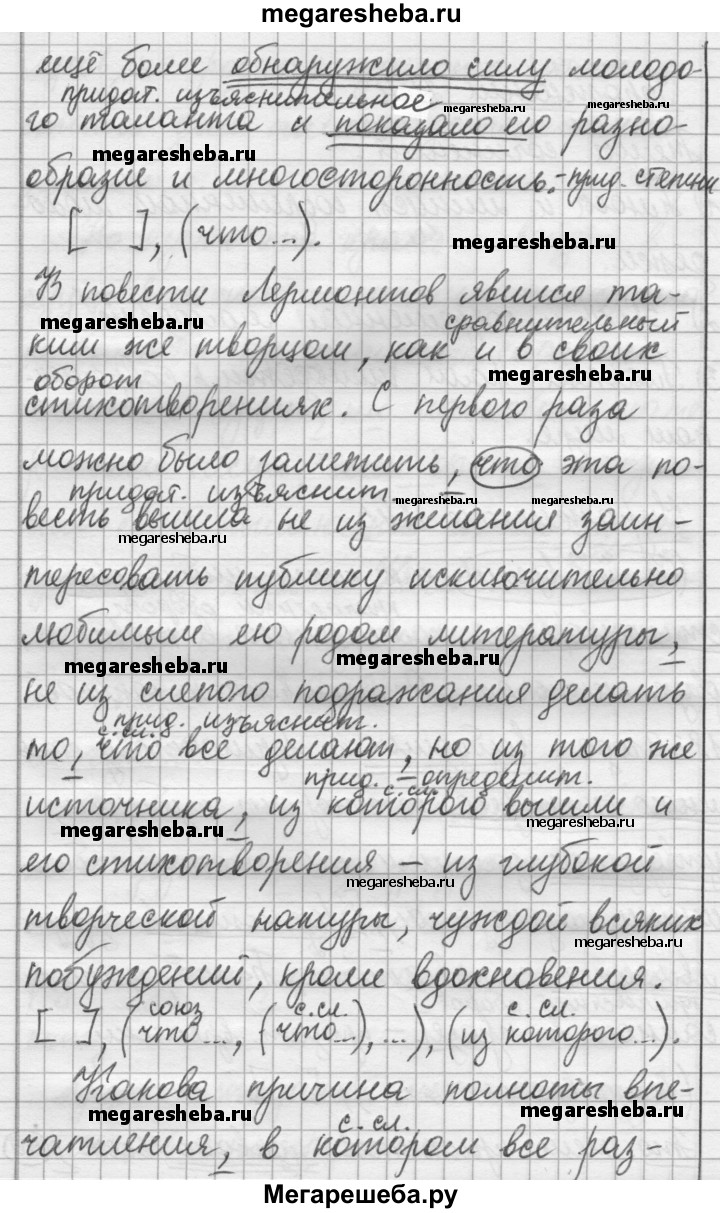 megaresheba.ru
ещё более обнаружило силу молодо-
придат. изъяснительное
megaresheba.ru megaresheba.ru
го таланта и показало его разно-
megaresheba.ru
образие и многосторонность. - прид. степени
[ ], (что...).
megaresheba.ru
В повести Лермонтов явился та-
megaresheba.ru сравнительный
ким же творцом, как и в своих
оборот megaresheba.ru
стихотворениях. С первого раза
можно было заметить, что эта по-
придат. изъяснит.
megaresheba.ru megaresheba.ru
весть вышла не из желания заин-
megaresheba.ru
тересовать публику исключительно
любимым ею родом литературы,
megaresheba.ru megaresheba.ru
не из слепого подражания делать
прид. изъяснит.
с.сл.
то, что все делают, но из того же
прид. - определит.
с.сл.
источника, из которого вышли и
megaresheba.ru megaresheba.ru
его стихотворения – из глубокой
megaresheba.ru
творческой натуры, чуждой всяких
megaresheba.ru
побуждений, кроме вдохновения.
союз с.сл. с.сл.
[ ], (что ..., (что...), ...), (из которого...).
Какова причина полноты впе-
megaresheba.ru megaresheba.ru
с.сл.
чатления, в котором все раз-
Мегарешеба.ру